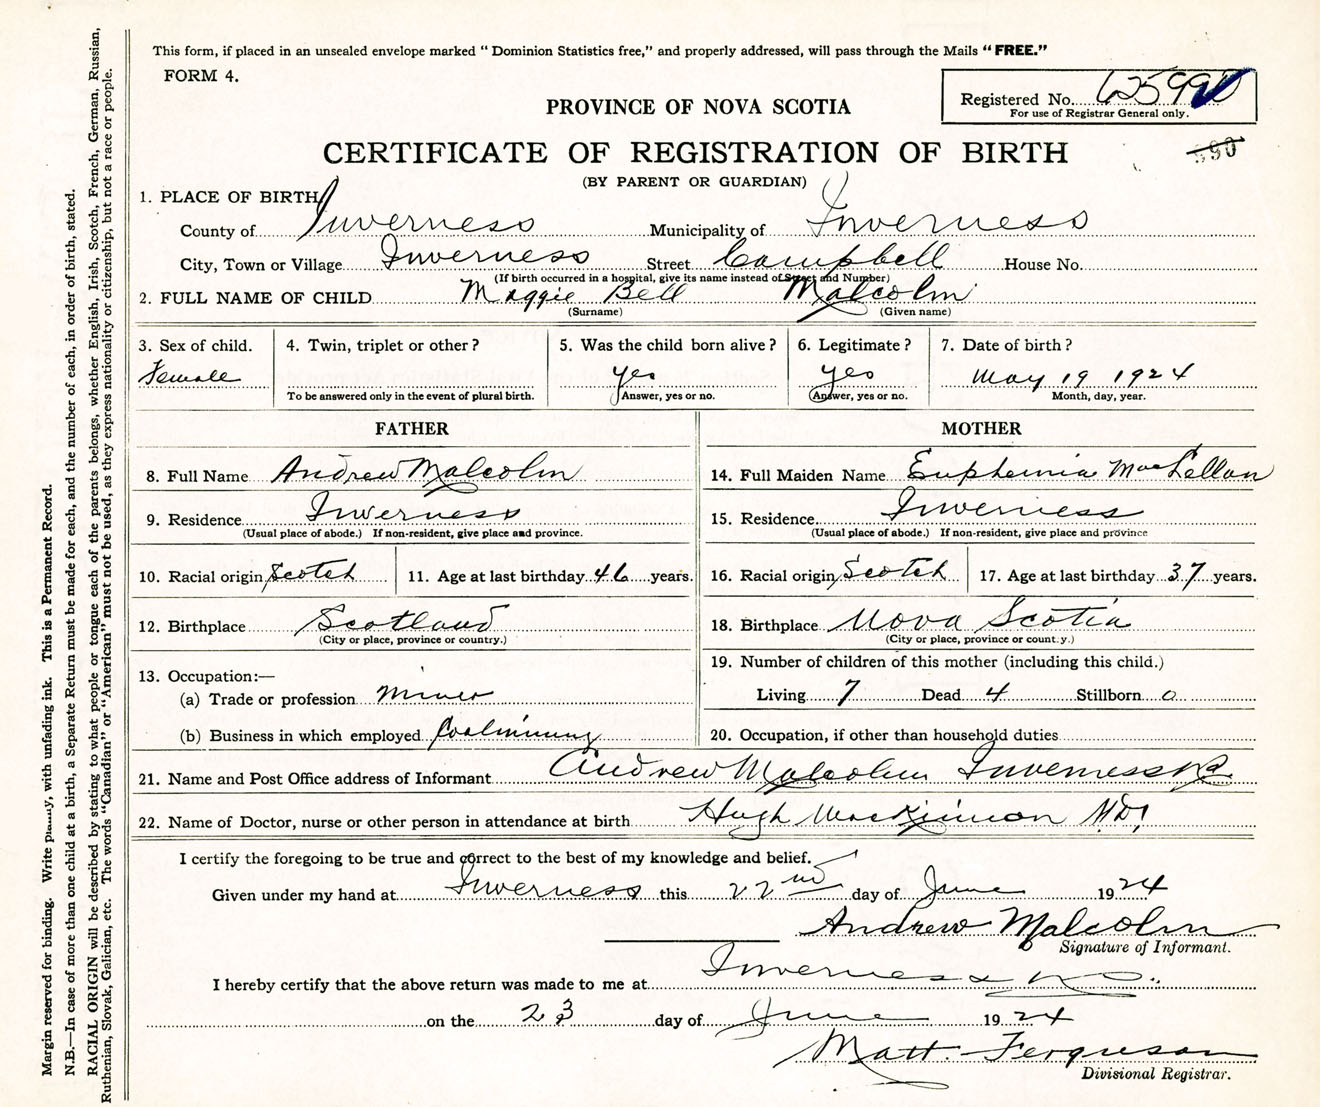 This form, if placed in an unsealed envelope marked "Dominion Statistics free," and properly addressed, will pass through the Mails "FREE."
FORM 4.
Registered No. 625990
For use of Registrar General only.
PROVINCE OF NOVA SCOTIA
CERTIFICATE OF REGISTRATION OF BIRTH
990
(BY PARENT OR GUARDIAN)
1. PLACE OF BIRTH
County of Inverness Municipality of Inverness
City, Town or Village Inverness Street Campbell House No.
(If birth occurred in a hospital, give its name instead of Street and Number)
2. FULL NAME OF CHILD Maggie Bell Malcolm
(Surname) (Given name)
3. Sex of child. 4. Twin, triplet or other? 5. Was the child born alive? 6. Legitimate? 7. Date of birth?
Female yes yes May 19 1924
To be answered only in the event of plural birth. Answer, yes or no. Answer, yes or no. Month, day, year.
FATHER MOTHER
8. Full Name Andrew Malcolm 14. Full Maiden Name Euphemia MacLellan
9. Residence Inverness 15. Residence Inverness
(Usual place of abode.) If non-resident, give place and province. (Usual place of abode.) If non-resident, give place and province
10. Racial origin Scotch 11. Age at last birthday 46 years. 16. Racial origin Scotch 17. Age at last birthday 37 years.
12. Birthplace Scotland 18. Birthplace Nova Scotia
(City or place, province or country.) (City or place, province or country.)
19. Number of children of this mother (including this child.)
13. Occupation:—
(a) Trade or profession Miner Living 7 Dead 4 Stillborn 0
(b) Business in which employed Coalmining 20. Occupation, if other than household duties
21. Name and Post Office address of Informant Andrew Malcolm Inverness NS
22. Name of Doctor, nurse or other person in attendance at birth Hugh MacKinnon M.D.
I certify the foregoing to be true and correct to the best of my knowledge and belief.
Given under my hand at Inverness this 22nd day of June 1924
Andrew Malcolm
Signature of Informant.
I hereby certify that the above return was made to me at Inverness N.S.
on the 23 day of June 1924
Matt. Ferguson
Divisional Registrar.
Margin reserved for binding. Write plainly, with unfading ink. This is a Permanent Record.
N.B.—In case of more than one child at a birth, a Separate Return must be made for each, and the number of each, in order of birth, stated.
RACIAL ORIGIN will be described by stating to what people or tongue each of the parents belongs, whether English, Irish, Scotch, French, German, Russian,
Ruthenian, Slovak, Galician, etc. The words "Canadian" or "American" must not be used, as they express nationality or citizenship, but not a race or people.